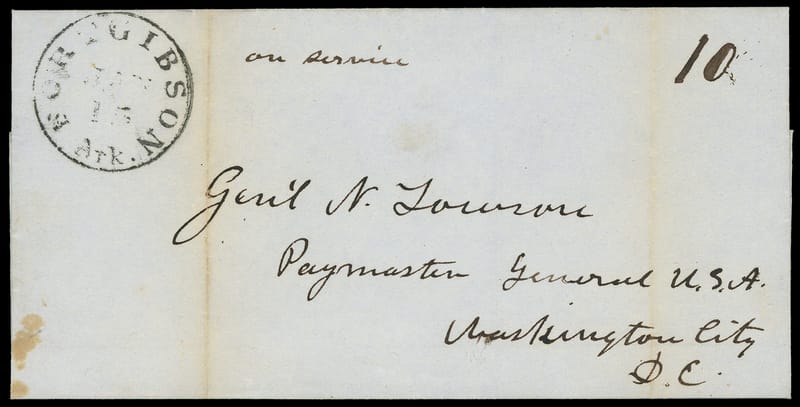 FORT GIBSON
Ark.
on service
10
Gen'l N. Towson
Paymaster General U.S.A.
Washington City
D.C.